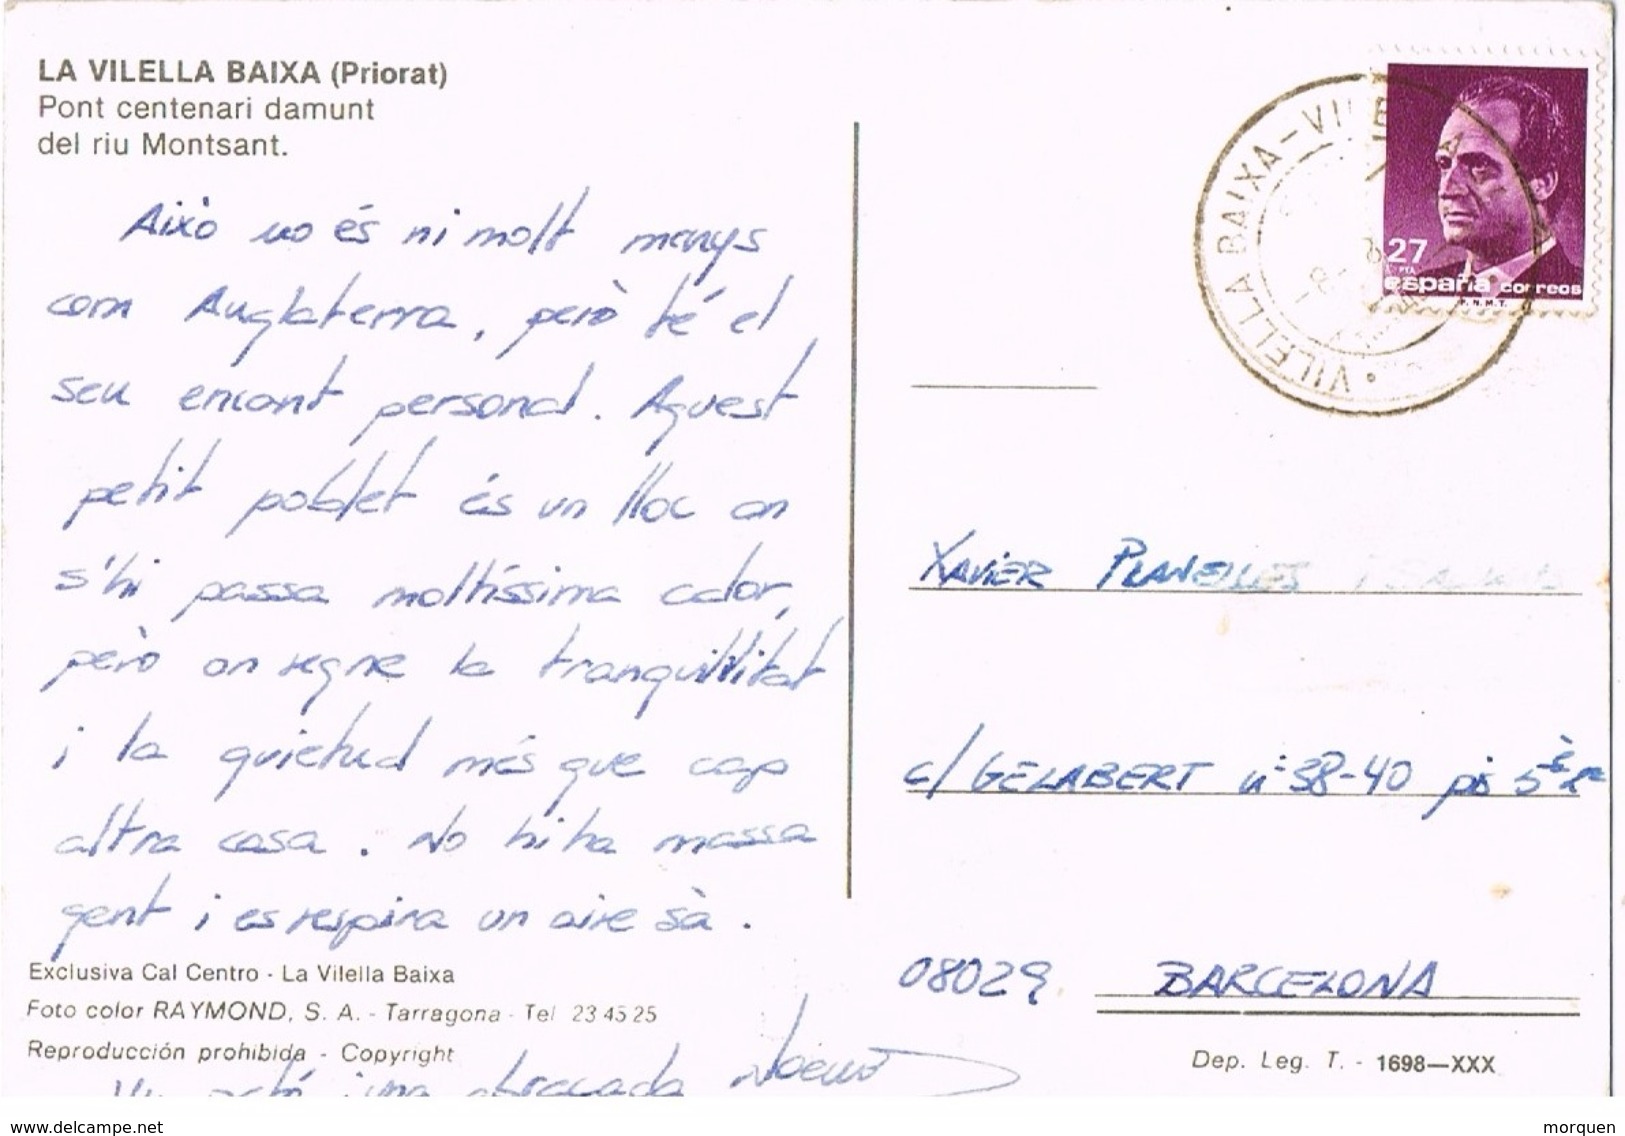 LA VILELLA BAIXA (Priorat)
Pont centenari damunt
del riu Montsant.
Això no és ni molt menys
com Anglaterra, però té el
seu encant personal. Aquest
petit poblet és un lloc on
s'hi passa moltíssima calor,
però on regne la tranquil·litat
i la quietud més que cap
altra cosa. No hi ha massa
gent i es respira un aire sà.
Exclusiva Cal Centro - La Vilella Baixa
Foto color RAYMOND, S. A. - Tarragona - Tel 23 45 25
Reproducción prohibida - Copyright
i una abraçada
VILELLA BAIXA - VILELLA BAIXA
27
PTA
españa correos
F.N.M.T.
XAVIER PLANELLES I
c/ GELABERT nº 38-40 pis 5è
08029 BARCELONA
Dep. Leg. T. - 1698—XXX
www.delcampe.net
morquen